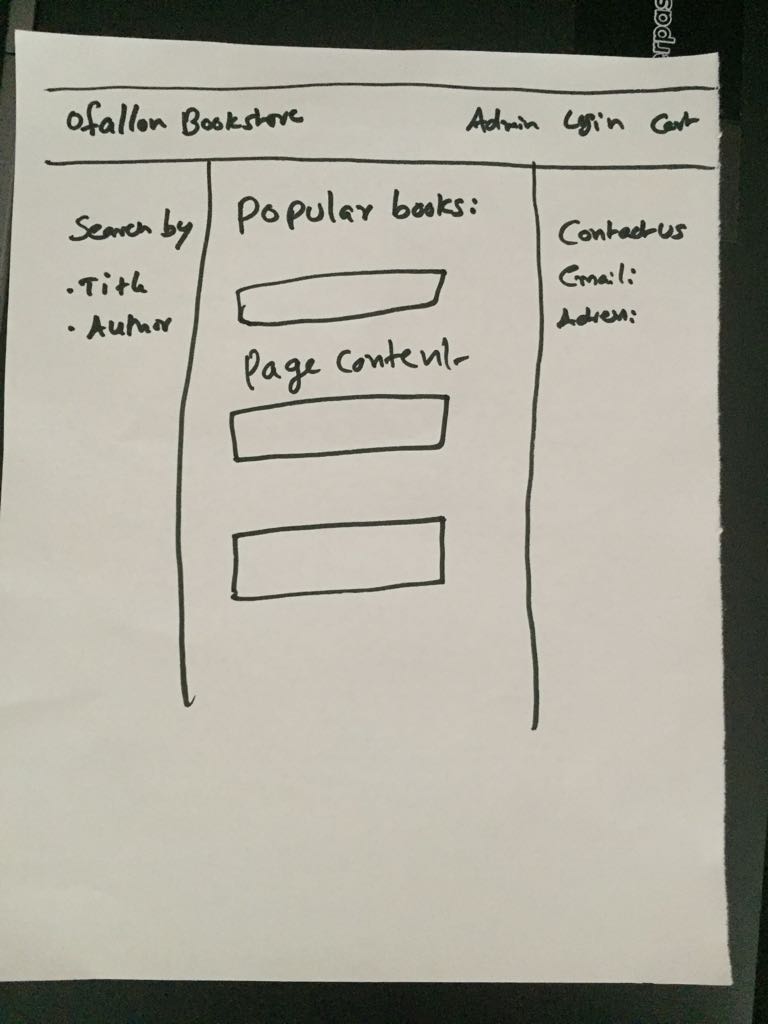 Ofallon Bookstore Admin Login Cart
Search by
• Title
• Author
Popular books:
Page Content
Contact us
Email:
Adress: